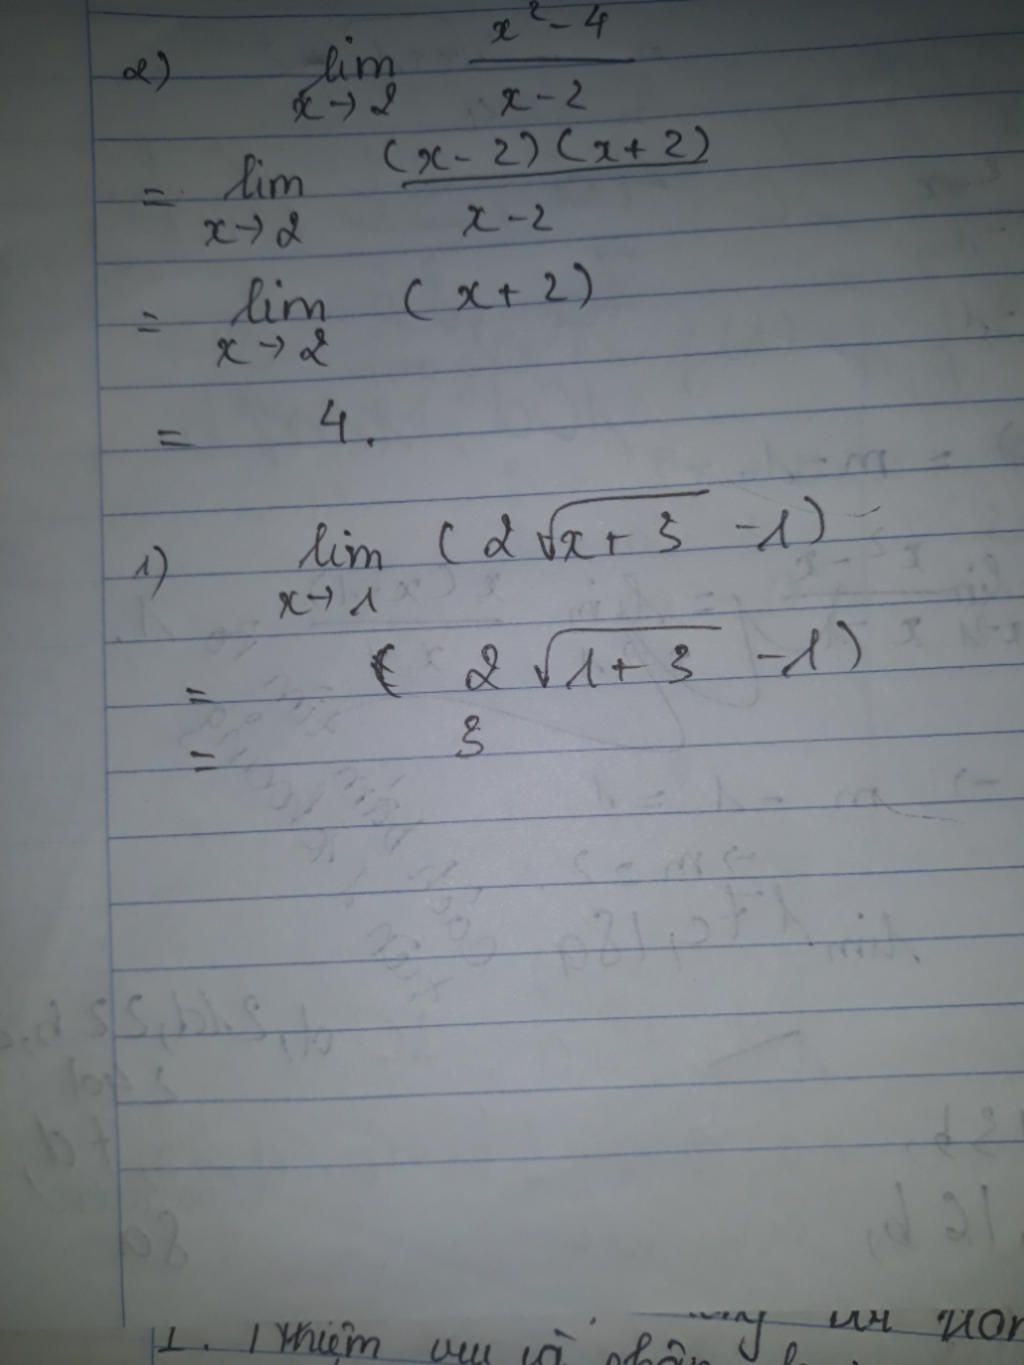 2) lim x→2 (x² - 4)/(x - 2)
= lim x→2 ((x - 2)(x + 2))/(x - 2)
= lim x→2 (x + 2)
= 4.
1) lim x→1 (2√(x + 3) - 1)
= (2√(1 + 3) - 1)
= 3
1. Nhiệm vụ và phân